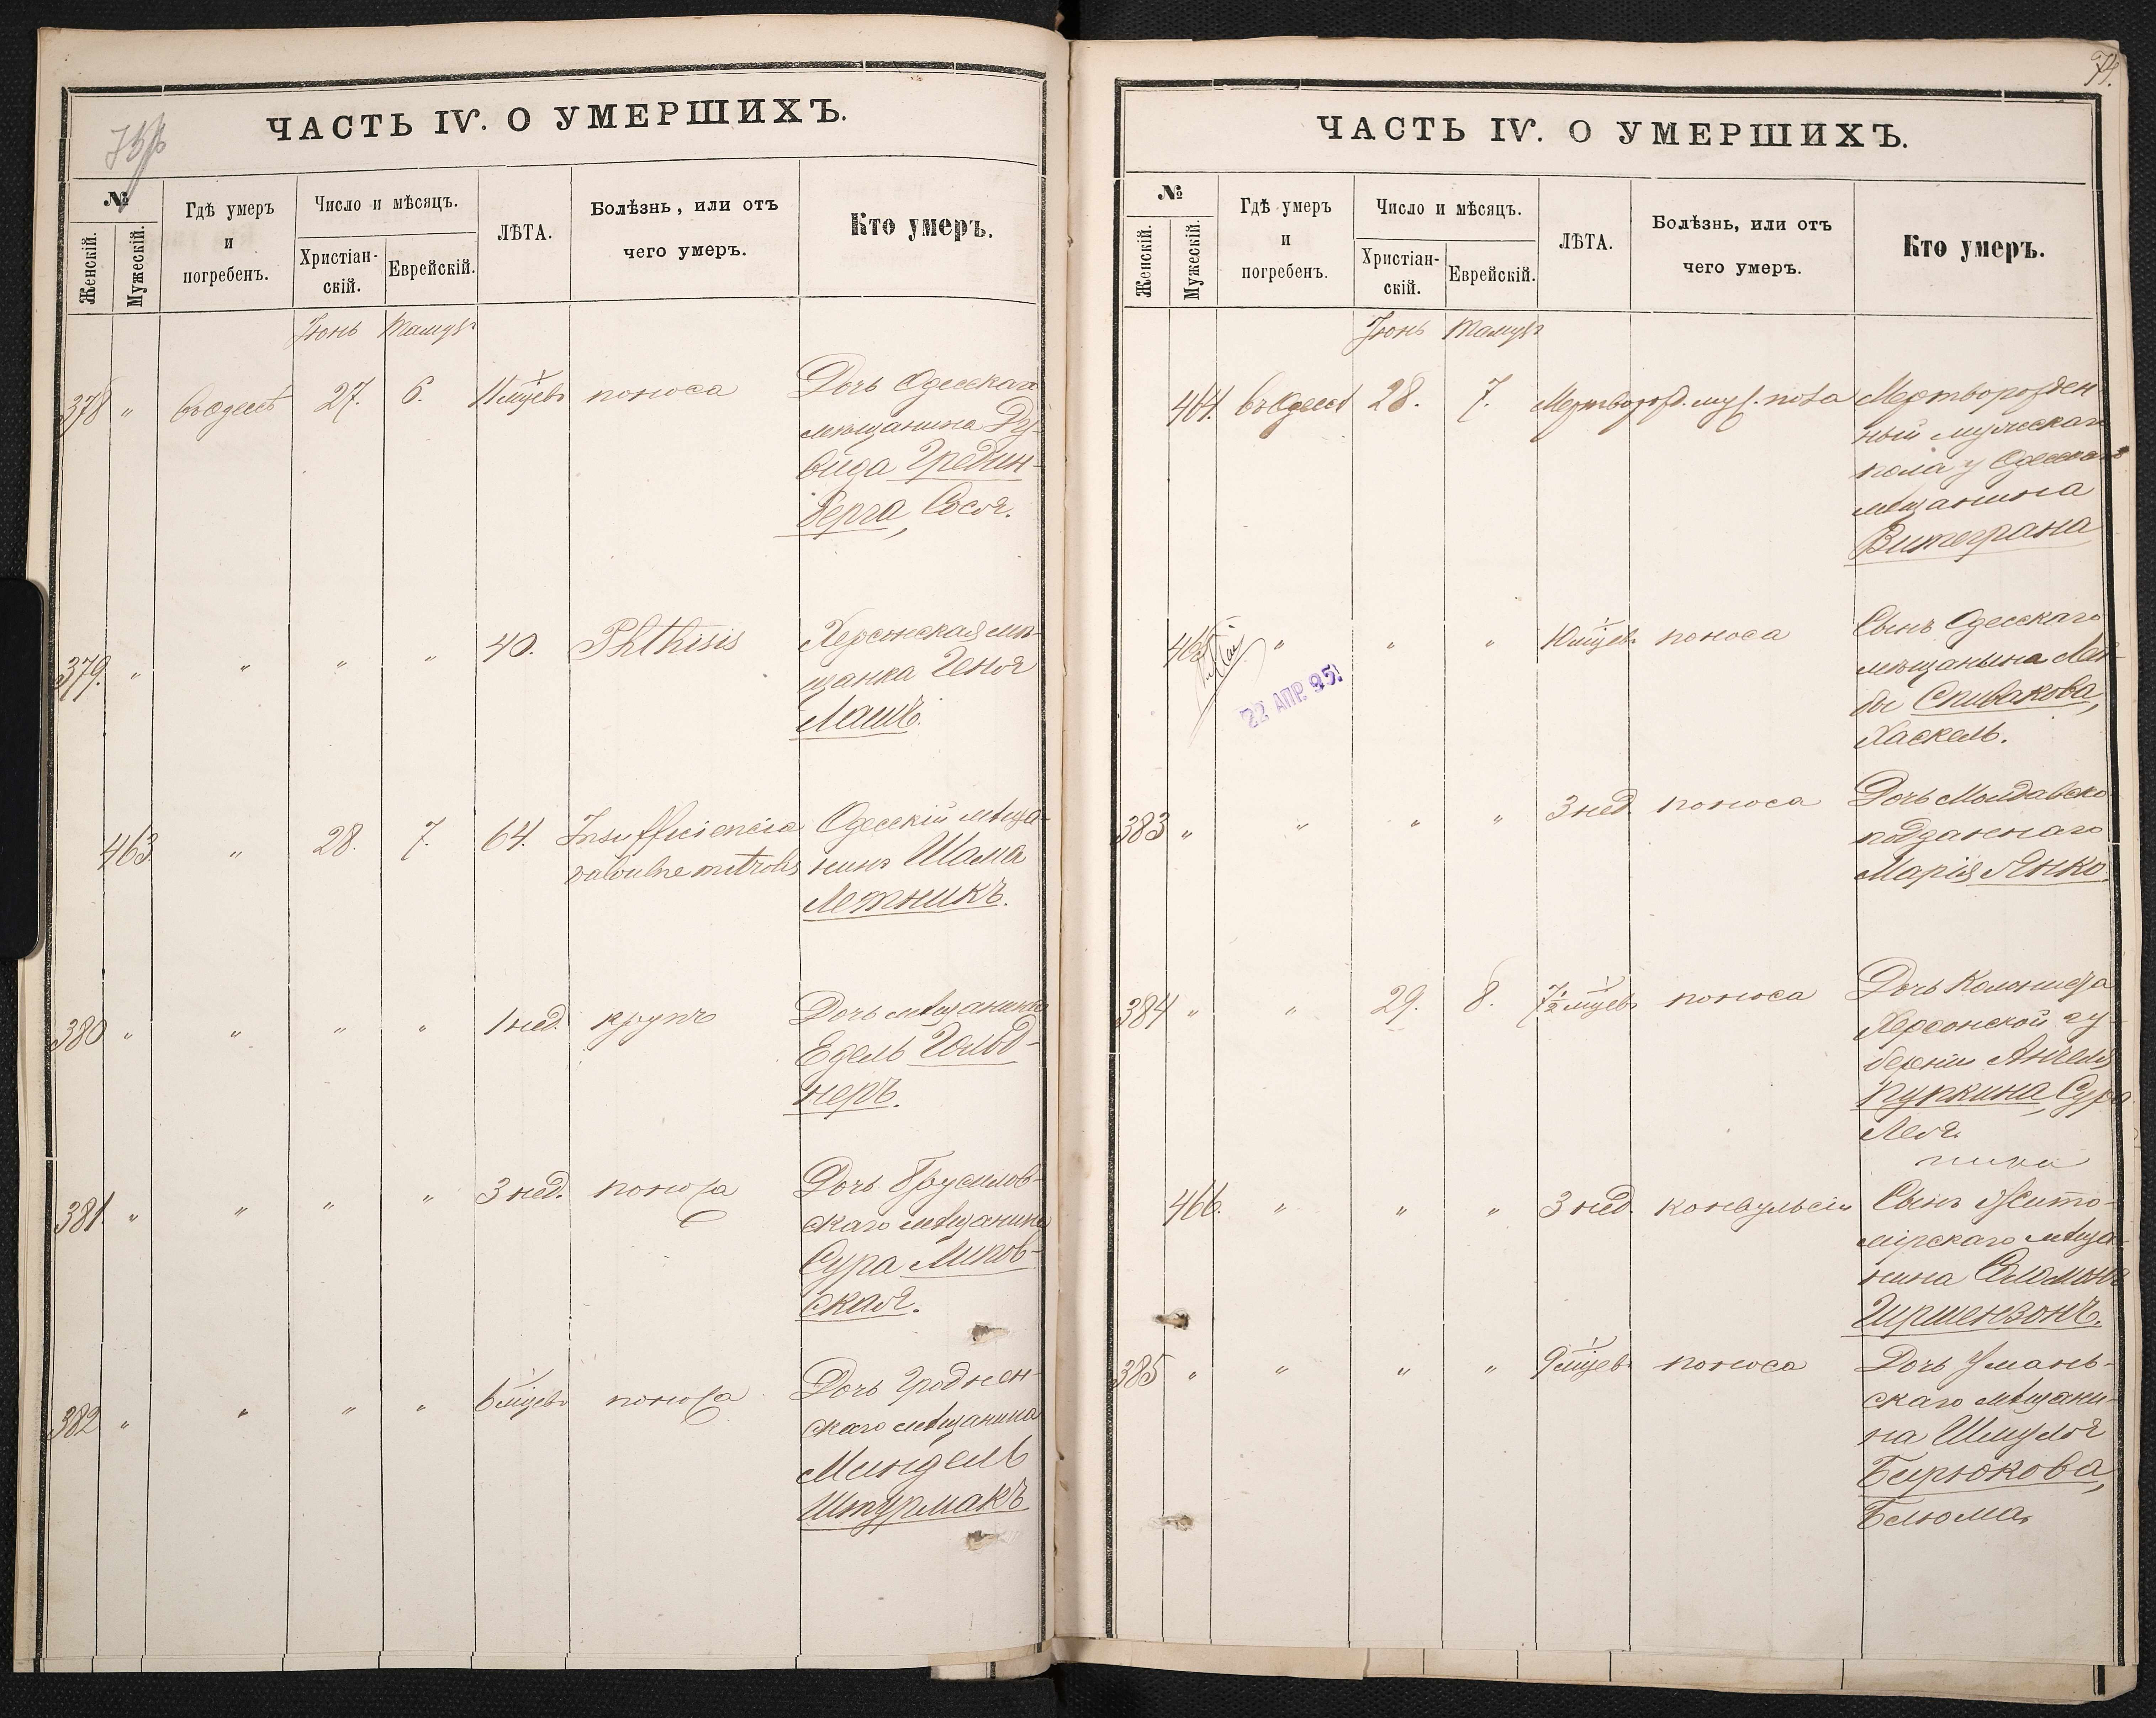 ЧАСТЬ IV. О УМЕРШИХЪ.
№
Женскій.
Мужескій.
Гдѣ умеръ
и
погребенъ.
Число и мѣсяцъ.
Христіан-
скій.
Еврейскій.
ЛѢТА.
Болѣзнь, или отъ
чего умеръ.
Кто умеръ.
Іюнь Тамузъ
378 " въ Одессѣ 27. 6. 11 мцевъ поноса Дочь Одесскаго
мѣщанина Ду-
вида Гредин-
берга, Сося.
379. " " " " 40. Phthisis Херсонская мѣ-
щанка Геня
Лашъ.
463 " 28. 7. 64. Insufficiencia Одесскій мѣща-
valvulne mitralis нинъ Шама
Летникъ.
380 " " " " 1 нед. крупъ Дочь мѣщанина
Едель Гольд-
неръ.
381. " " " " 3 нед. поноса Дочь Брусилов-
скаго мѣщанина
Сура Липов-
ская.
382 " " " " 6 мцевъ поноса Дочь Гроднен-
скаго мѣщанина
Миндель
Штурмакъ
74.
ЧАСТЬ IV. О УМЕРШИХЪ.
№
Женскій.
Мужескій.
Гдѣ умеръ
и
погребенъ.
Число и мѣсяцъ.
Христіан-
скій.
Еврейскій.
ЛѢТА.
Болѣзнь, или отъ
чего умеръ.
Кто умеръ.
Іюнь Тамузъ
464. въ Одессѣ 28. 7. Мертворожд. муж. пола Мертворожден
ный мужескаго
пола у Одесскаго
мѣщанина
Витеграна
465 " " " 10 мцевъ поноса Сынъ Одесскаго
мѣщанина Лей-
бы Спивакова,
Хаскель.
22 АПР. 95
383 " " " " 3 нед. поноса Дочь Молдавско
подданнаго
Марія Янко.
384 " " 29. 8. 7½ мцевъ поноса Дочь Колониста
Херсонской гу-
берніи Анчеля
Пуркина, Сура
Лея.
466. " " " 3 нед. конвульсіи Сынъ Жито-
мірскаго мѣща-
нина Соломонъ
Гиршензонъ.
385 " " " " 9 мцевъ поноса Дочь Умань-
скаго мѣщани-
на Шмуля
Бирюкова,
Белюма.